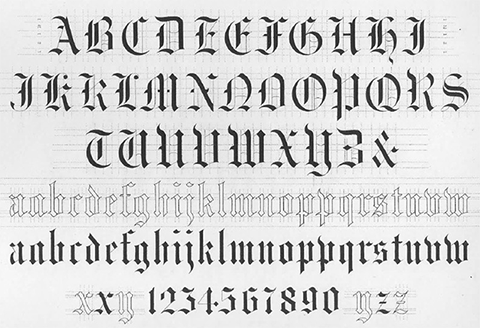 ABCDEEFGHHI
JKKLMNNOOPQRS
TUUVWXYZ&
aabcdefghijklmnoppqrstuvw
aabcdefghijklmnoppqrstuvw
xxy 1234567890 yzz